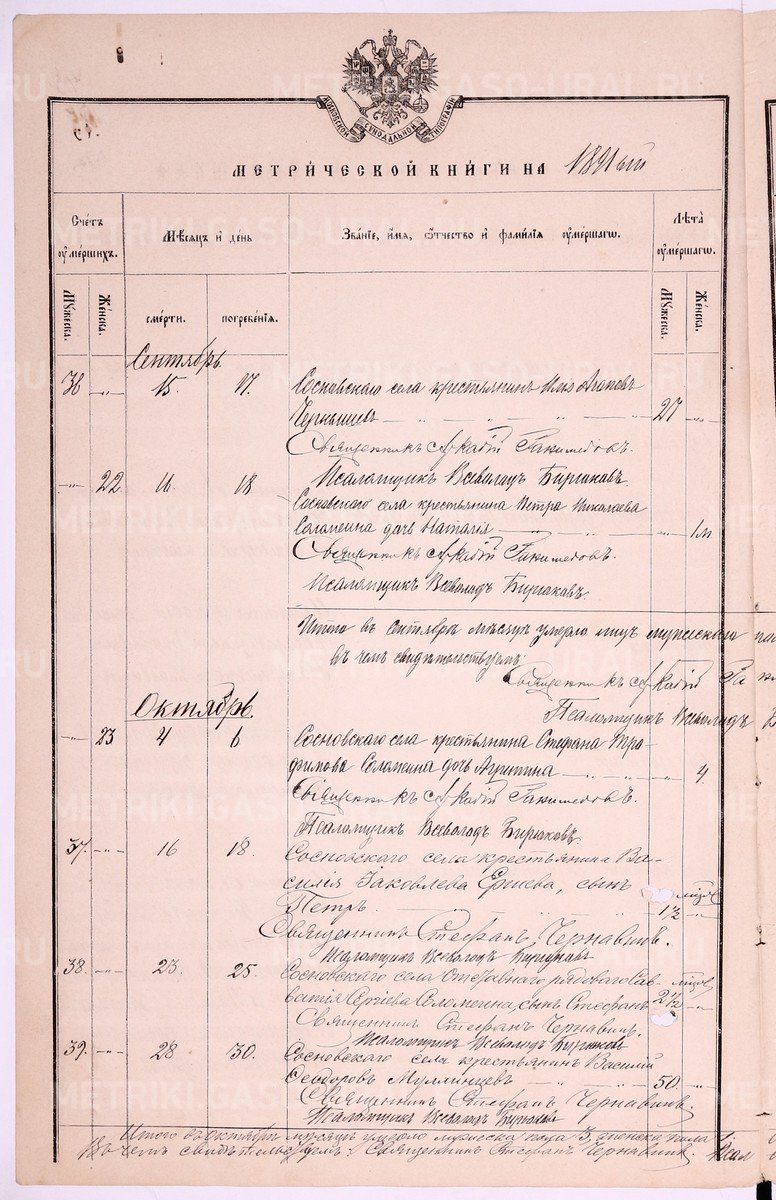 МОСКОВСКОЙ СѴНОДАЛЬНОЙ ТИПОГРАФІИ
МЕТРИ́ЧЕСКОЙ КНИ́ГИ НА 1891ый
Сче́тъ оуме́ршихъ.
Мѣ́сяцъ и де́нь
Зва́ніе, и́мя, ѻ҆́тчество и фами́лія оуме́ршагѡ.
Лѣ́та оуме́ршагѡ.
Му́жеска.
Же́нска.
сме́рти.
погребе́нія.
Му́жеска.
Же́нска.
Сентябрь.
36 -"- 15. 17. Сосновскаго села крестьянинъ Илія Агаповъ
Чернышевъ 27 -"-
Священникъ Аркадій Ганимедовъ.
Псаломщикъ Всеволодъ Бирюковъ.
-"- 22 16 18 Сосновскаго села крестьянина Петра Николаева
Соломеина дочь Наталія -"- 1м
Священникъ Аркадій Ганимедовъ.
Псаломщикъ Всеволодъ Бирюковъ.
Итого въ Сентябрѣ мѣсяцѣ умерло лицъ мужескаго
въ чемъ свидѣтельствуемъ:
Священникъ Аркадій Га
Псаломщикъ Всеволодъ Б
Октябрь.
-"- 23 4 6 Сосновскаго села крестьянина Стефана Тро-
фимова Соломеина дочь Агрипина -"- 4
Священникъ Аркадій Ганимедовъ.
Псаломщикъ Всеволодъ Бирюковъ
37. -"- 16 18. Сосновскаго села крестьянина Ва-
силія Іаковлева Ершева, сынъ
Петръ 1½ мѣсяц -"-
Священникъ Стефанъ Чернавинъ.
Псаломщикъ Всеволодъ Бирюковъ
38. -"- 23. 25. Сосновскаго села Отставнаго рядоваго Сав-
ватія Сергіева Соломеина, сынъ Стефанъ 2½ мѣсяц -"-
Священникъ Стефанъ Чернавинъ.
Псаломщикъ Всеволодъ Бирюковъ
39. -"- 28 30. Сосновскаго села крестьянинъ Василій
Ѳеодоровъ Муллинцевъ 50 -"-
Священникъ Стефанъ Чернавинъ.
Псаломщикъ Всеволодъ Бирюковъ
Итого въ октябрѣ мѣсяцѣ умерло мужеска пола 3, женска пола 1.
Въ чемъ свидѣтельствуемъ: Священникъ Стефанъ Чернавинъ. Псал
METRIKI.GASO-URAL.RU